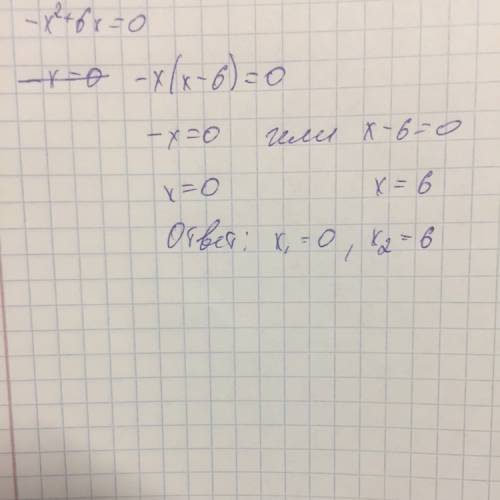 -x²+6x=0
-x=0 -x(x-6)=0
-x=0 или x-6=0
x=0 x=6
Ответ: x₁=0, x₂=6